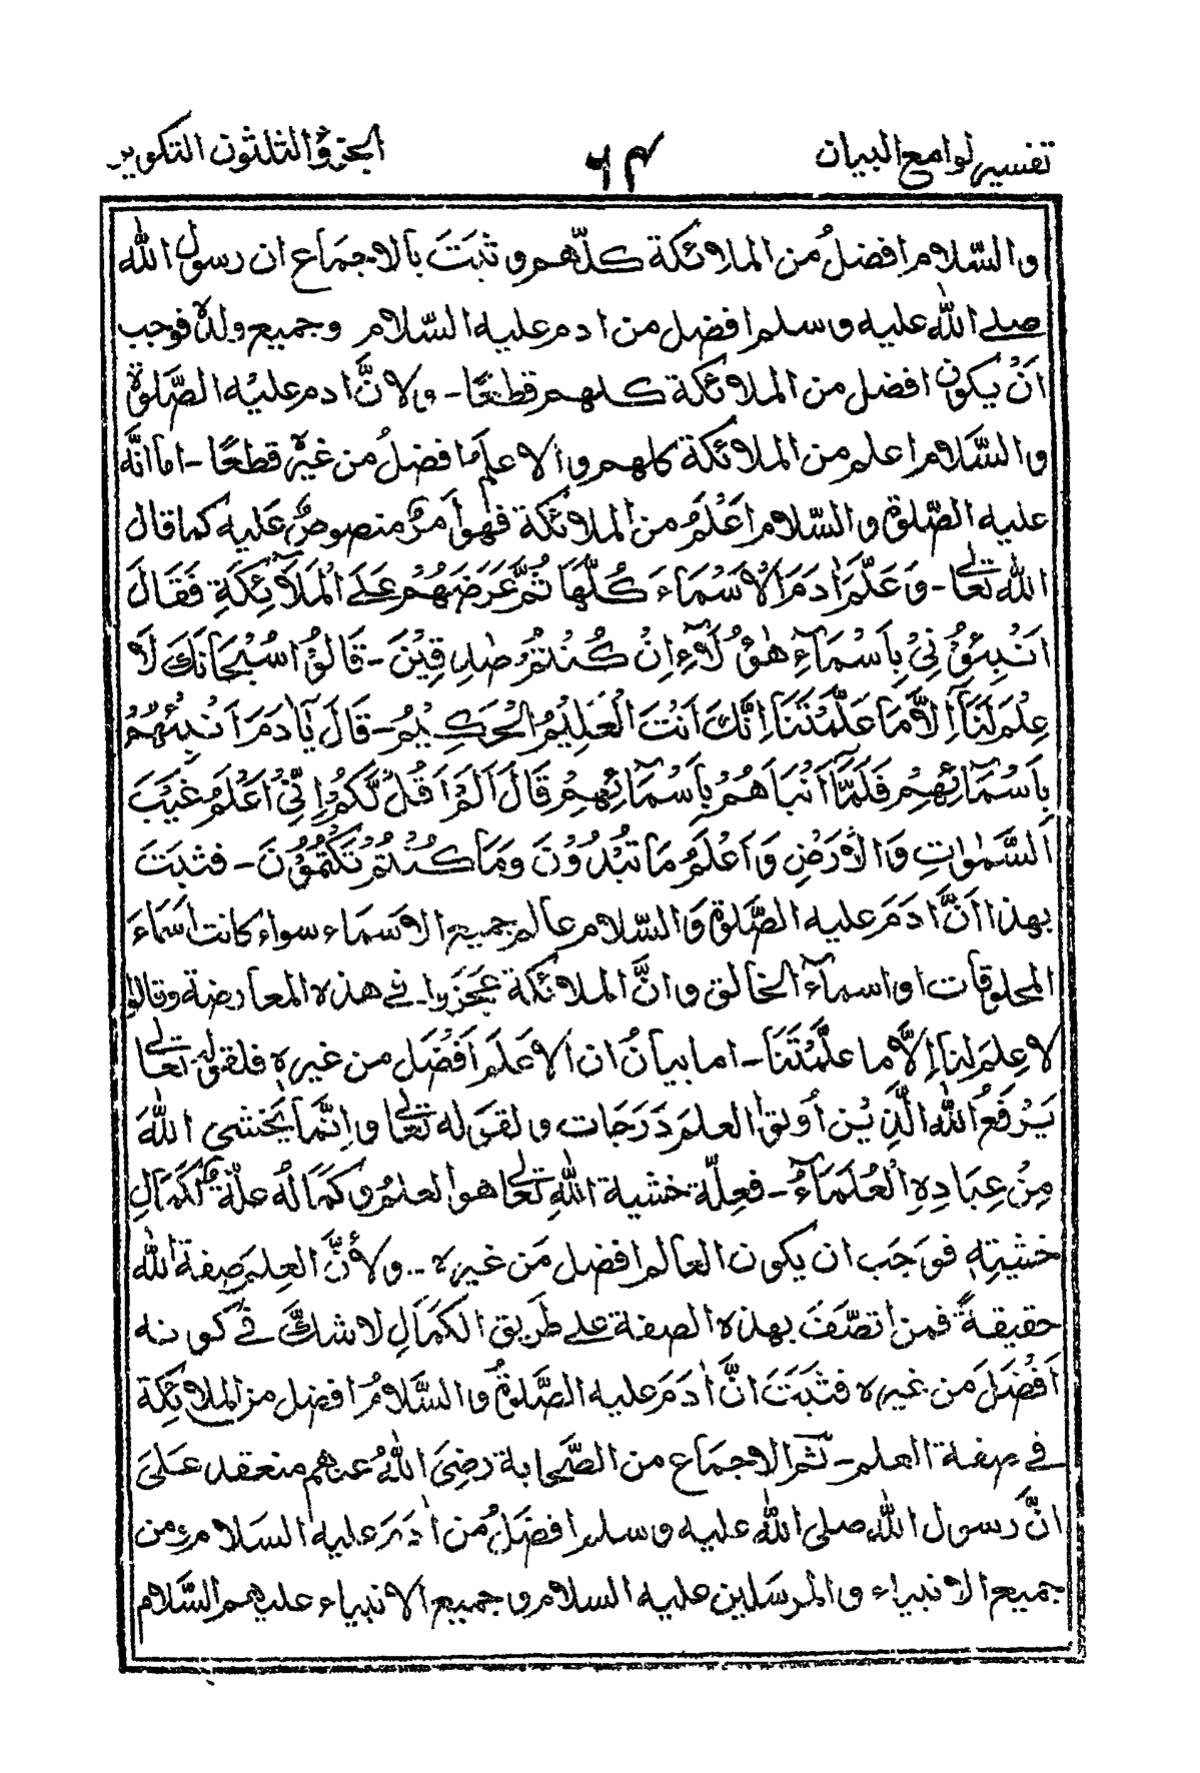 تفسير لوامع البيان ٦٤ الجزؤ الثلثون التكوير
والسّلام افضلُ من الملائكة كلّهم و ثبَتَ بالاجمَاع ان رسول الله
صلى الله عليه وسلم افضل من ادم عليه السّلام وجميع ولده فوجب
انْ يكون افضل من الملائكة كلهم قطعًا - ولانَّ ادم عليْه الصَّلوة
والسَّلام اعلم من الملائكة كلهم والاعلم افضلُ من غيره قطعًا - اما انَّه
عليه الصّلوة والسّلام اعْلمُ من الملائكة فهو امرٌ منصوصٌ عَليه كما قال
الله تعالى - وَعَلَّمَ اٰدَمَ الْاَسْمَاءَ كُلَّهَا ثُمَّ عَرَضَهُمْ عَلَى الْمَلَائِكَةِ فَقَالَ
اَنْبِئُوْنِيْ بِاَسْمَآءِ هٰؤُلَآءِ اِنْ كُنْتُمْ صٰدِقِيْنَ - قَالُوْا سُبْحَانَكَ لَا
عِلْمَ لَنَآ اِلَّا مَا عَلَّمْتَنَا اِنَّكَ اَنْتَ الْعَلِيْمُ الْحَكِيْمُ - قَالَ يٰٓاٰدَمُ اَنْبِئْهُمْ
بِاَسْمَآئِهِمْ فَلَمَّآ اَنْبَاَهُمْ بِاَسْمَآئِهِمْ قَالَ اَلَمْ اَقُلْ لَّكُمْ اِنِّيْ اَعْلَمُ غَيْبَ
السَّمٰوٰتِ وَالْاَرْضِ وَاَعْلَمُ مَا تُبْدُوْنَ وَمَا كُنْتُمْ تَكْتُمُوْنَ - فثبَتَ
بهذا اَنَّ ادَمَ عليه الصَّلوة وَالسّلام عالم جميع الاسَمَاء سواء كانت اسَمَاءَ
المخلوقات او اسمآء الخالق وانَّ الملائكة عَجَزَوا في هذه المعارضة وقالوا
لا عِلمَ لنا اِلَّا ما علَّمْتَنَا - اما بيانُ ان الاعَلَم اَفضَل من غيره فلقوله تعالى
يَرْفَعُ اللهُ الَّذِيْن اُوتوا العلمَ دَرَجَات ولقوَله تعالى وانَّما يَخشى اللهَ
مِنْ عِبَادِهِ الْعُلَمَآءُ - فعِلّة خشية اللهِ تعالى هو العلمُ وكمَالُه علّة لكمَالِ
خشيتِه فوَجَب ان يكون العالم افضل مَن غيره .. ولأنَّ العِلمَ صِفة الله
حقيقةً فمن اتصَّفَ بهذه الصفة على طَريق الكمَالِ لا شكَّ في كونه
اَفْضَلَ مَن غيره فثَبَتَ انَّ اٰدَمَ عليه الصَّلوةُ والسَّلامُ افضل من الملائِكة
في صفة العلم - ثم الاجمَاع من الصَّحابة رضِيَ اللهُ عنهم منعقد عَلىَ
انَّ رَسول الله صلى الله عليه وسلم افضَلُ من اٰدَمَ عليه السَلام ومِن
جميع الانبياء والمرسَلين عليه السلام وجميع الانبياء عليهم السَّلام